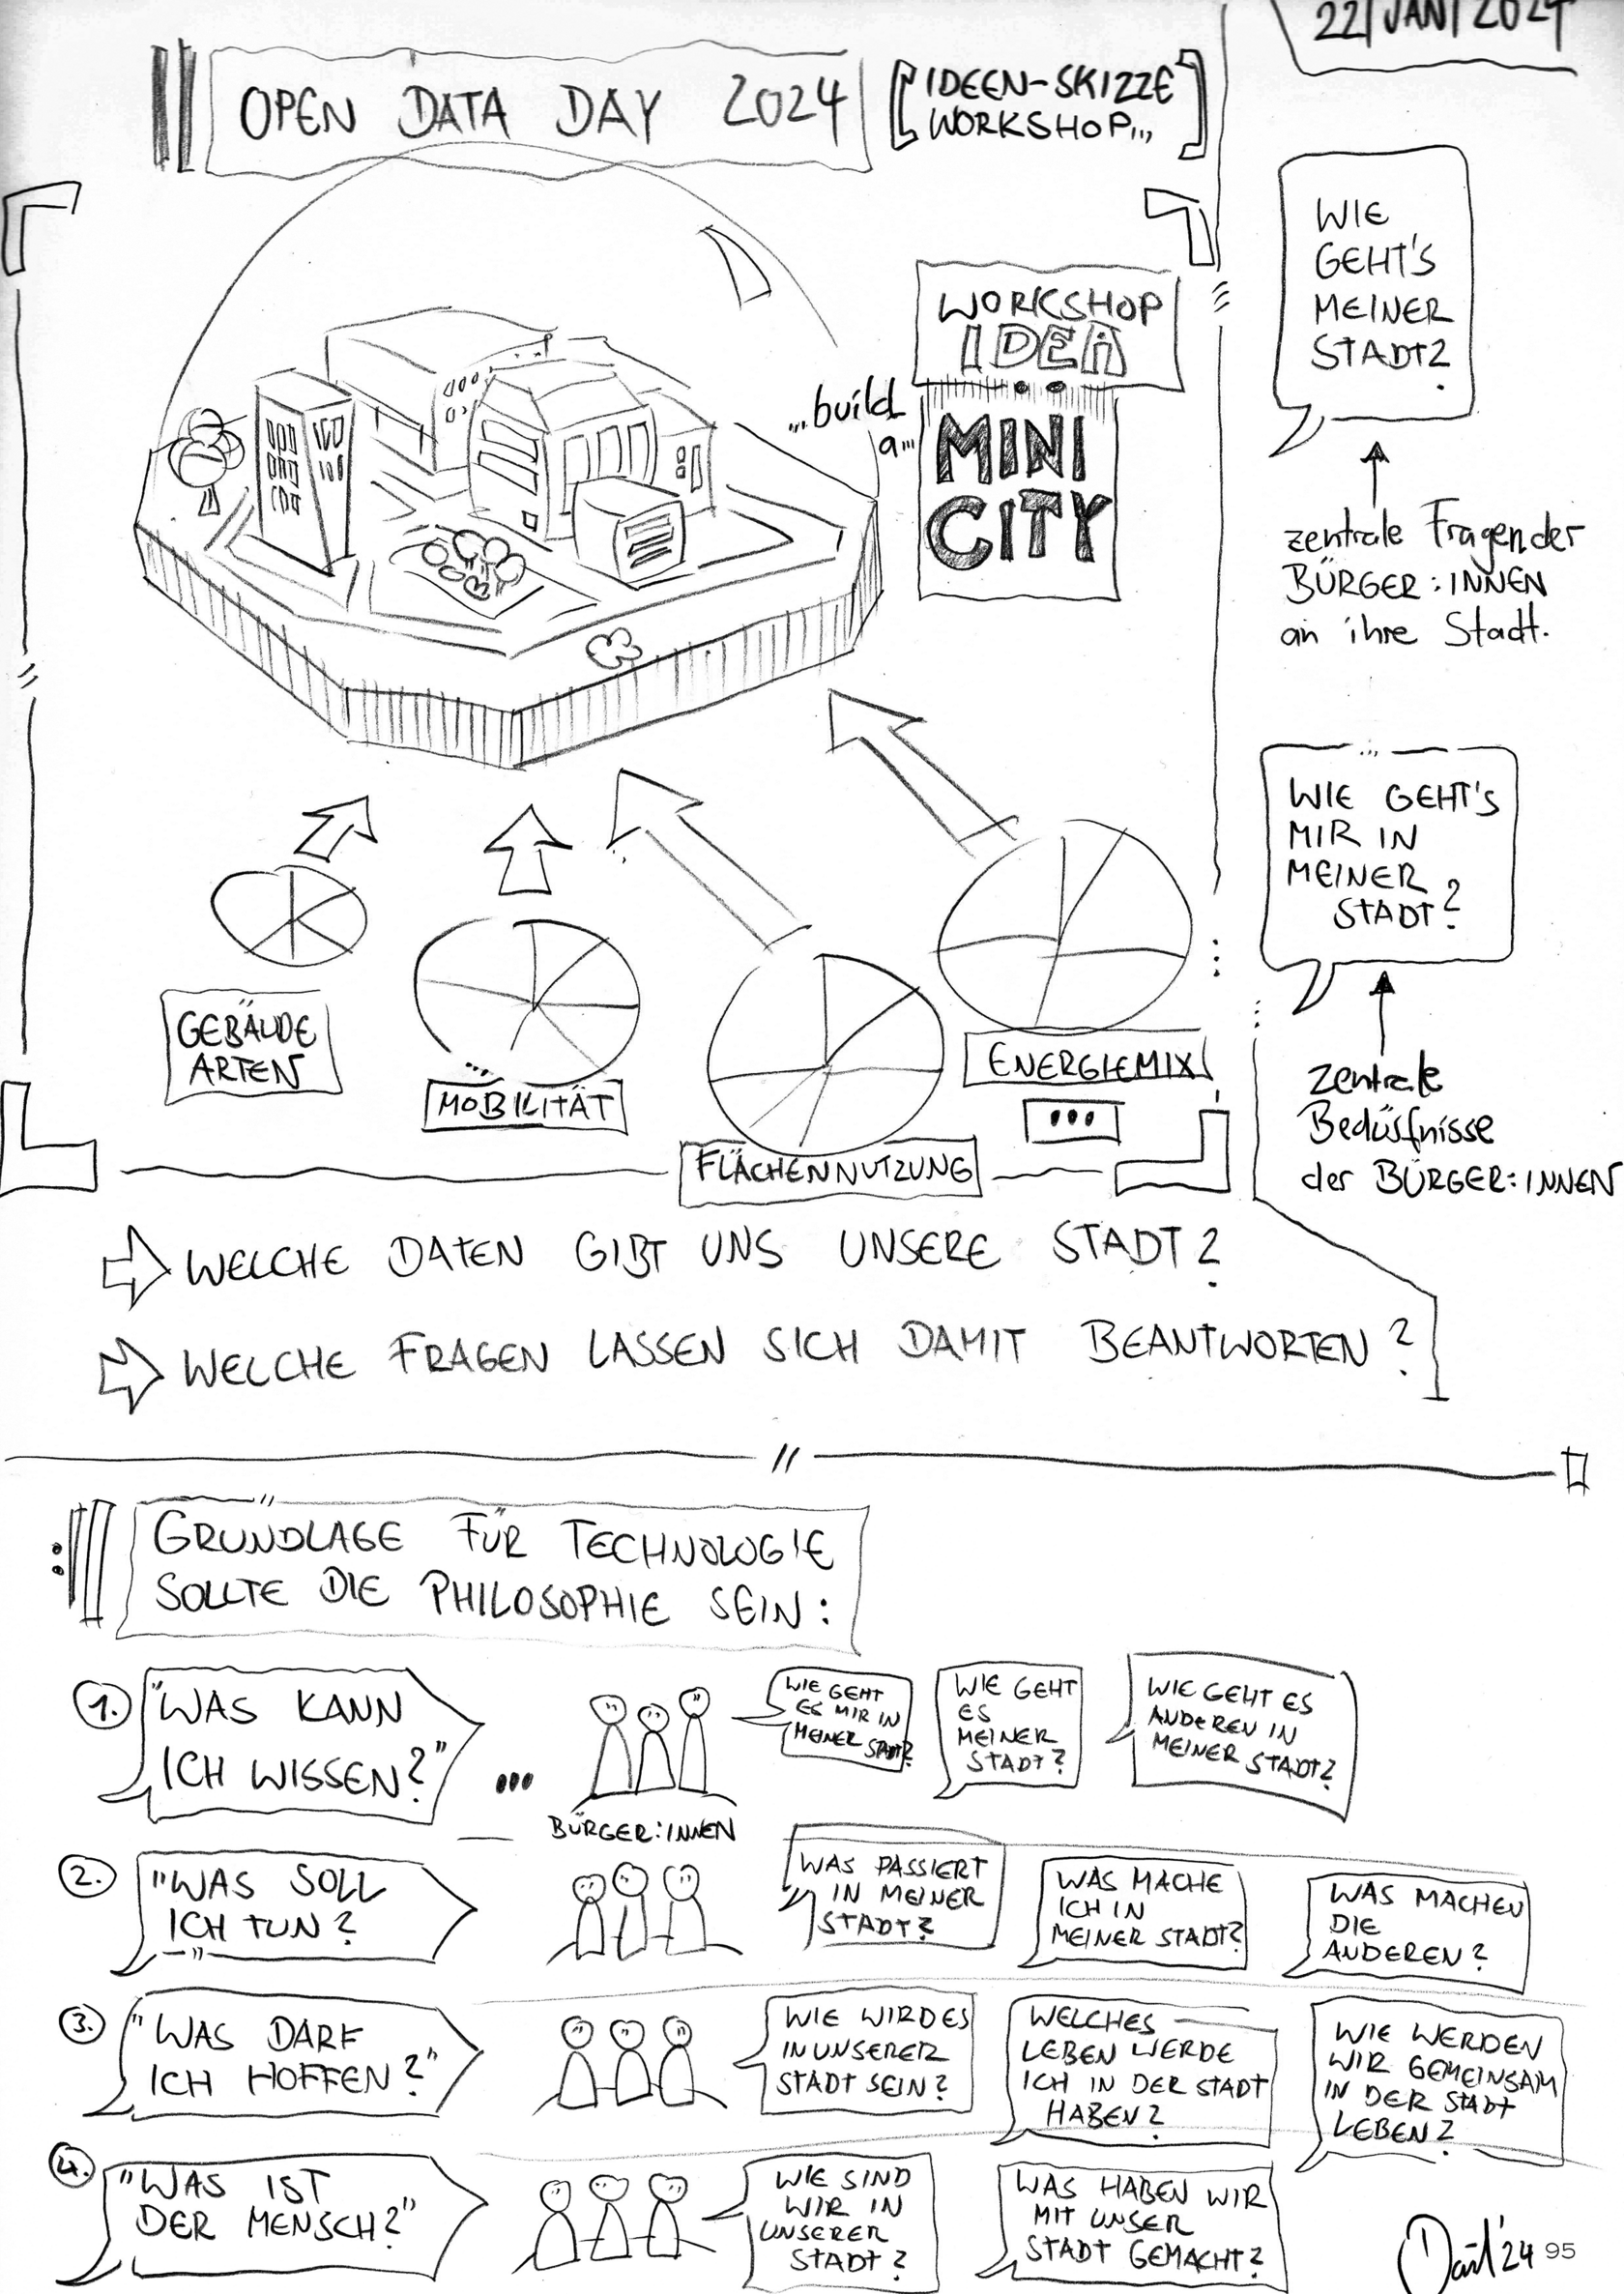 22/JAN/2024
OPEN DATA DAY 2024
[IDEEN-SKIZZE
WORKSHOP...]
WORKSHOP
IDEA
...build
a...
MINI
CITY
WIE
GEHT'S
MEINER
STADT?
zentrale Fragen der
BÜRGER:INNEN
an ihre Stadt.
...
WIE GEHT'S
MIR IN
MEINER
STADT?
zentrale
Bedürfnisse
der BÜRGER:INNEN
GEBÄUDE
ARTEN
...
MOBILITÄT
FLÄCHENNUTZUNG
ENERGIEMIX
...
WELCHE DATEN GIBT UNS UNSERE STADT?
WELCHE FRAGEN LASSEN SICH DAMIT BEANTWORTEN?
GRUNDLAGE FÜR TECHNOLOGIE
SOLLTE DIE PHILOSOPHIE SEIN:
1. "WAS KANN
ICH WISSEN?" ...
BÜRGER:INNEN
WIE GEHT
ES MIR IN
MEINER STADT?
WIE GEHT
ES
MEINER
STADT?
WIE GEHT ES
ANDEREN IN
MEINER STADT?
2. "WAS SOLL
ICH TUN?
WAS PASSIERT
IN MEINER
STADT?
WAS MACHE
ICH IN
MEINER STADT?
WAS MACHEN
DIE
ANDEREN?
3. "WAS DARF
ICH HOFFEN?"
WIE WIRD ES
IN UNSERER
STADT SEIN?
WELCHES
LEBEN WERDE
ICH IN DER STADT
HABEN?
WIE WERDEN
WIR GEMEINSAM
IN DER STADT
LEBEN?
4. "WAS IST
DER MENSCH?"
WIE SIND
WIR IN
UNSERER
STADT?
WAS HABEN WIR
MIT UNSER
STADT GEMACHT?
'24 95